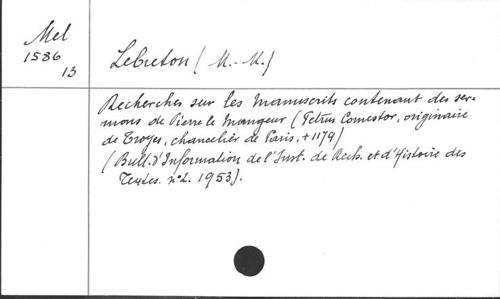 Mel
1586
13
Lebreton (M.-M.)
Recherches sur les manuscrits contenant des ser-
mons de Pierre le Mangeur (Petrus Comestor, originaire
de Troyes, chancelier de Paris, +1179)
(Bull. d'Information de l'Inst. de Rech. et d'Histoire des
Textes. n°2. 1953).